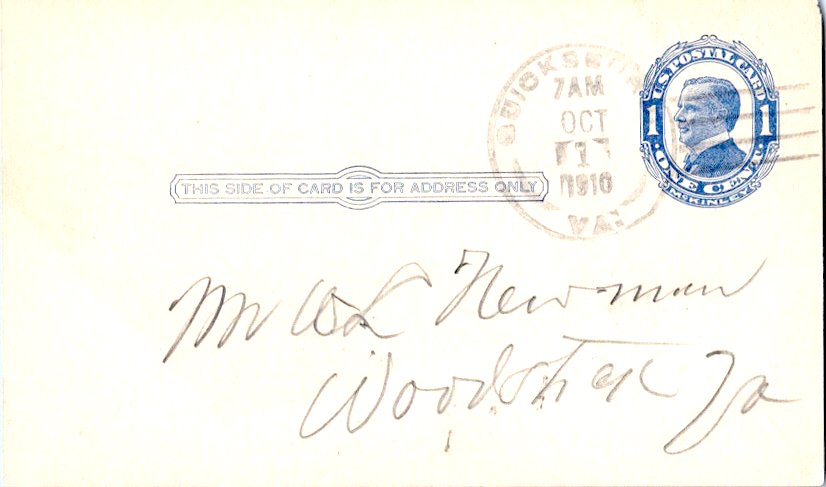 U.S. POSTAL CARD
1 1
ONE CENT
McKINLEY
QUICKSBURG
7AM
OCT
1
1910
VA.
THIS SIDE OF CARD IS FOR ADDRESS ONLY
Mr W L Newman
Woodstock Va